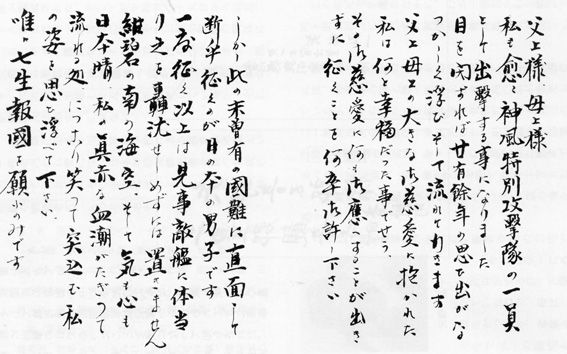 父上様母上様
私も愈々神風特別攻撃隊の一員
として出撃する事になりました
目を閉ずれば廿有餘年の思ひ出がな
つかしく浮びそして流れて行きます
父上母上の大きな御慈愛に抱かれた
私は何と幸福だった事でせう
その御慈愛に何も御應へすることが出来
ずに征くことを何卒御許し下さい
しかし此の未曽有の國難に直面して
断乎征くのが日本男子です
一度征く以上は見事敵艦に体当
り之を轟沈せしめずには置きません
紺碧の南の海空そして気心も
日本晴 私の真赤な血潮がたぎって
流れる処につこり笑って突込む私
の姿を思ひ浮べて下さい
唯々七生報國を願ふのみです